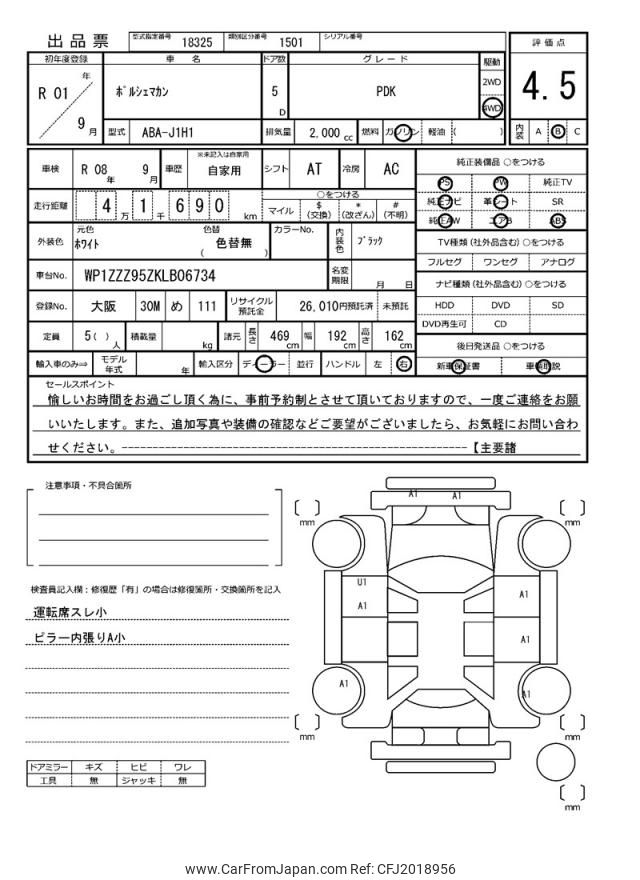 出品票 型式指定番号 18325 類別区分番号 1501 シリアル番号
初年度登録 車名 ドア数 グレード 駆動 評価点
R 01 年 9 月 ﾎﾟﾙｼｪﾏｶﾝ 5 D PDK 2WD 4WD 4.5
型式 ABA-J1H1 排気量 2,000 cc 燃料 ガソリン 軽油 ( ) 内装 A B C
車検 R 08 年 9 月 車歴 ※未記入は自家用 自家用 シフト AT 冷房 AC
純正装備品 ○をつける
PS PW 純正TV
純正ナビ 革シート SR
純正AW エアB ABS
走行距離 4 万 1 千 6 9 0 km ○をつける マイル $ (交換) * (改ざん) # (不明)
外装色 元色 ﾎﾜｲﾄ 色替 色替無 ( ) カラーNo. 内装色 ﾌﾞﾗｯｸ
TV種類 (社外品含む) ○をつける
フルセグ ワンセグ アナログ
車台No. WP1ZZZ95ZKLB06734 名変期限 月 日
ナビ種類 (社外品含む) ○をつける
HDD DVD SD
DVD再生可 CD
登録No. 大阪 30M め 111 リサイクル預託金 26,010円預託済 未預託
定員 5( ) 人 積載量 kg 諸元 長さ 469 cm 幅 192 cm 高さ 162 cm
後日発送品 ○をつける
新車保証書 車輌取説
輸入車のみ⇒ モデル年式 年 輸入区分 ディーラー 並行 ハンドル 左 右
セールスポイント
愉しいお時間をお過ごし頂く為に、事前予約制とさせて頂いておりますので、一度ご連絡をお願
いいたします。また、追加写真や装備の確認などご要望がございましたら、お気軽にお問い合わ
せください。--------------------------------------------------【主要諸
注意事項・不具合箇所
検査員記入欄：修復歴「有」の場合は修復箇所・交換箇所を記入
運転席スレ小
ピラー内張りA小
ドアミラー キズ ヒビ ワレ
工具 無 ジャッキ 無
A1 A1
mm mm
U1
A1 A1
A1
A1 A1
mm mm
mm
www.CarFromJapan.com Ref: CFJ2018956